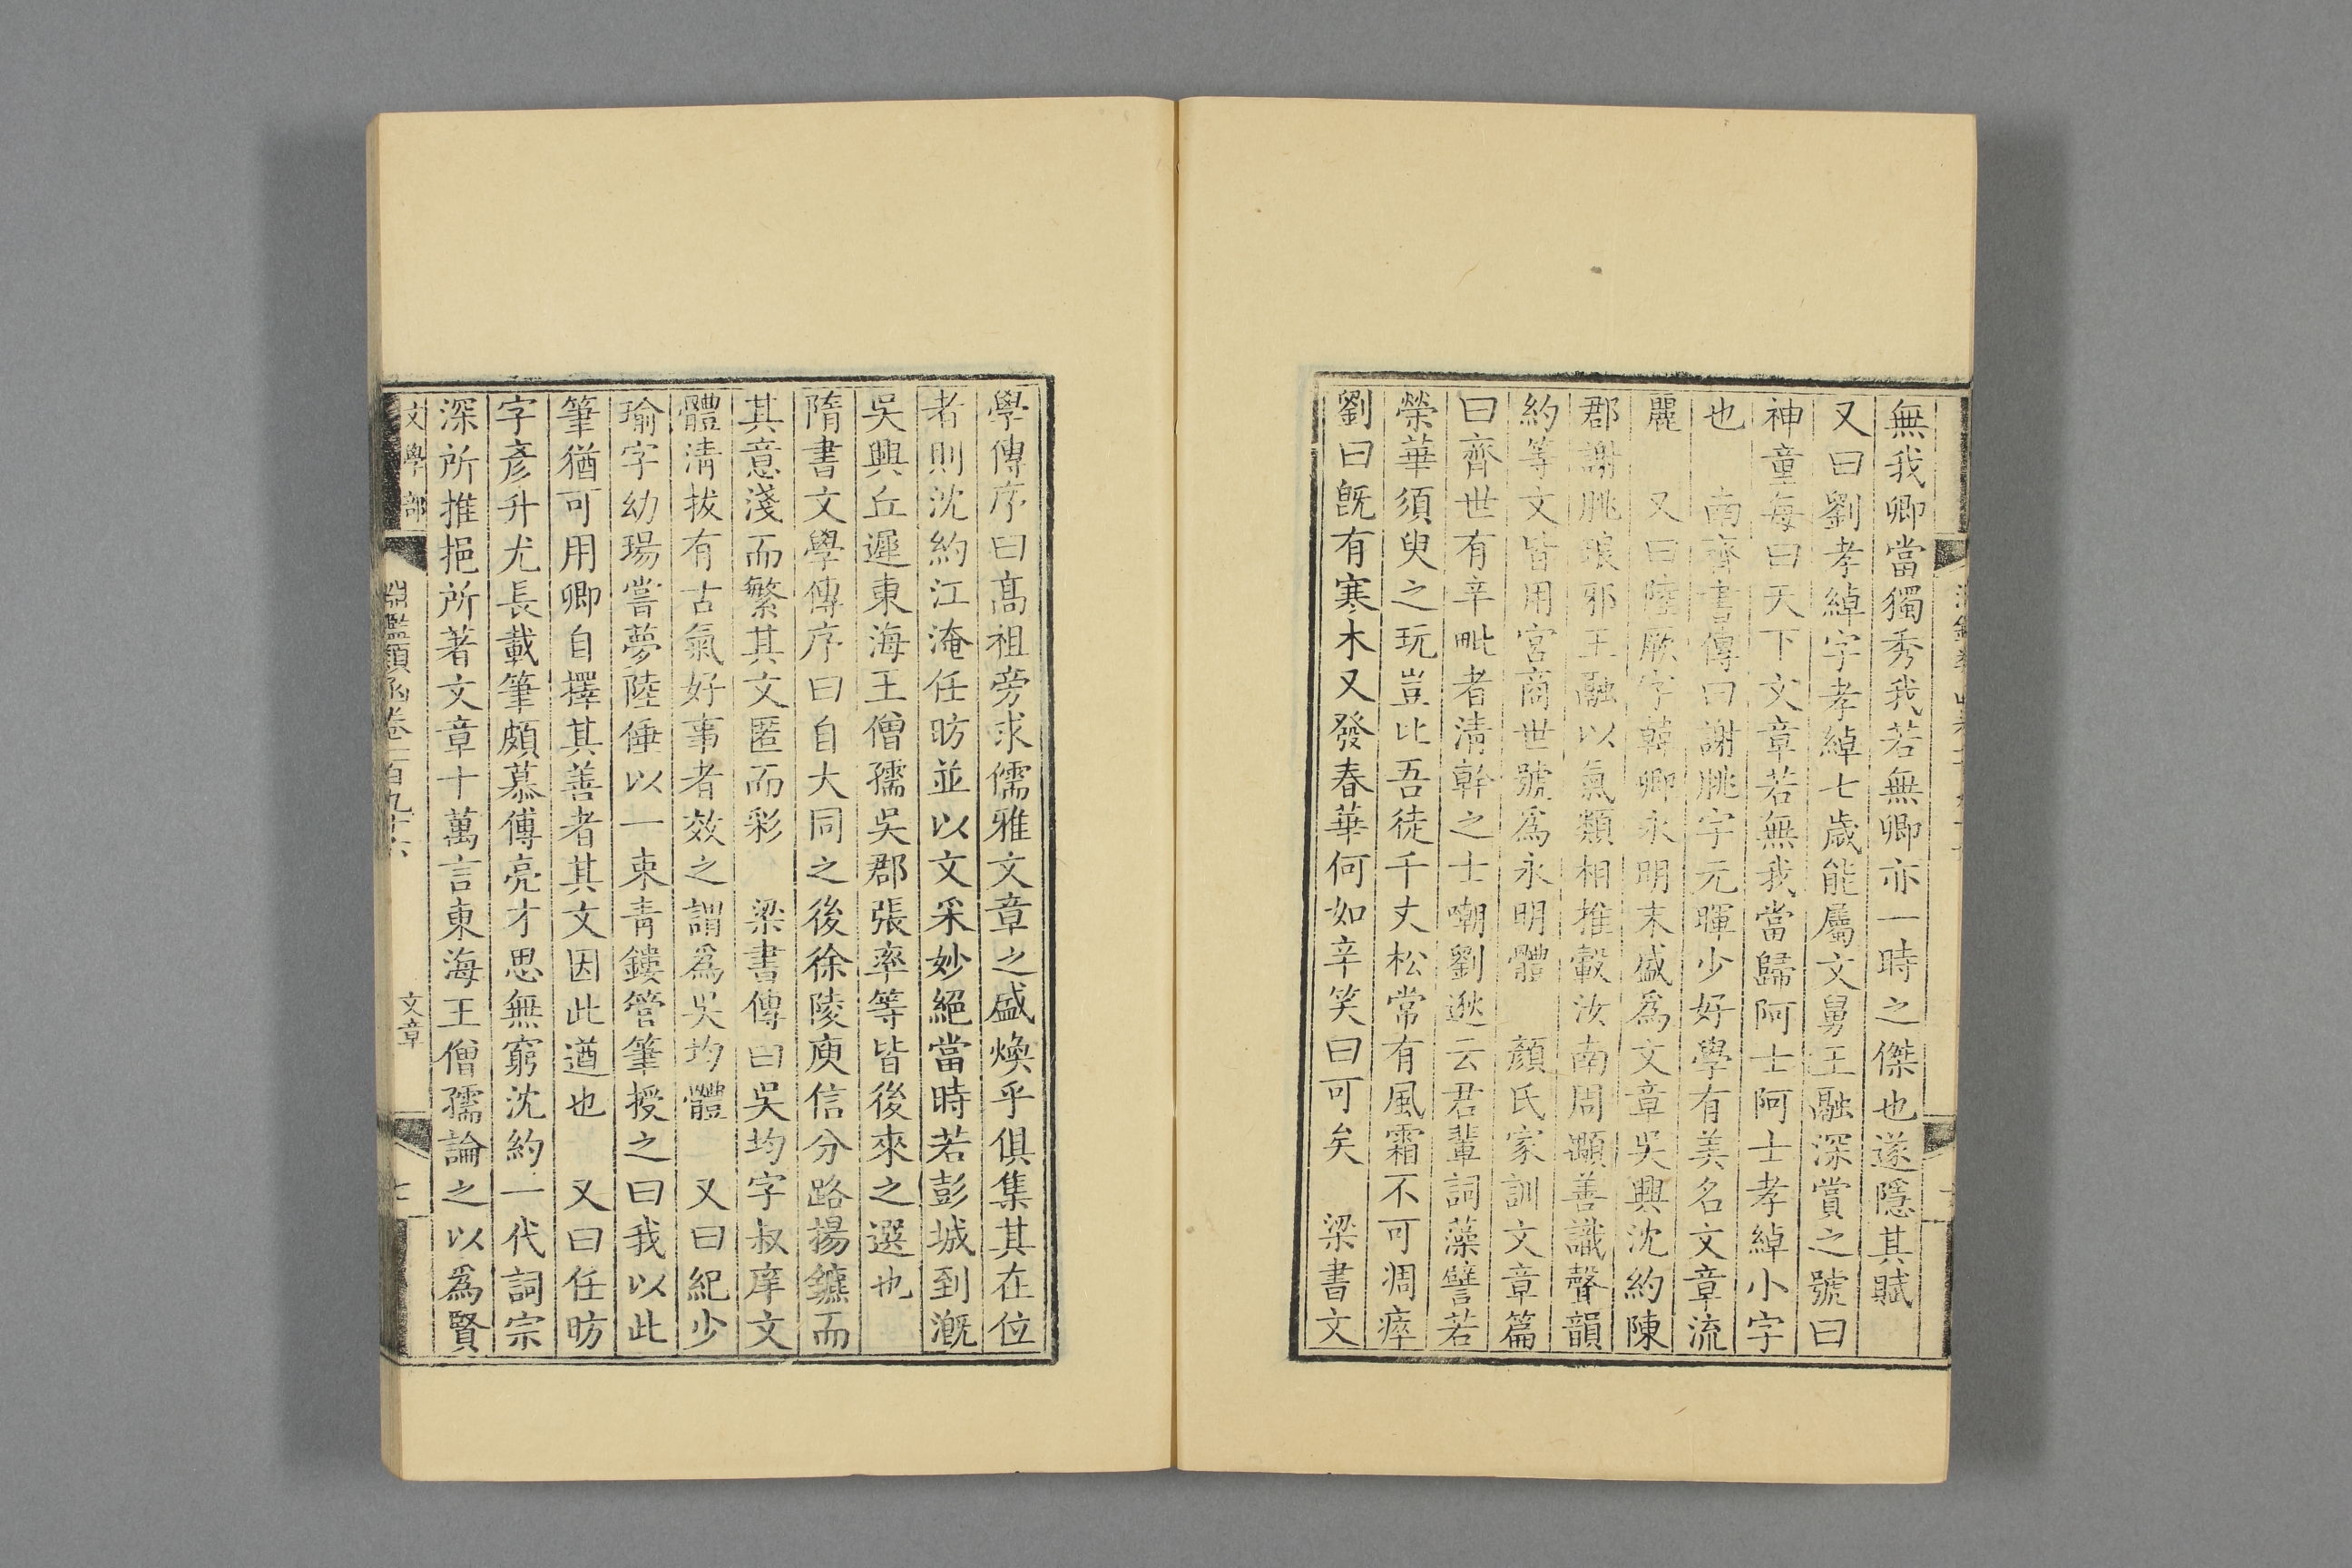 無我卿當獨秀我若無卿亦一時之傑也遂隱其賦
又曰劉孝綽字孝綽七歲能屬文舅王融深賞之號曰
神童每曰天下文章若無我當歸阿士阿士孝綽小字
也　南齊書傳曰謝朓字元暉少好學有美名文章流
麗　又曰陸厥字韓卿永明末盛爲文章吳興沈約陳
郡謝朓琅邪王融以氣類相推轂汝南周顒善識聲韻
約等文皆用宮商世號爲永明體　顏氏家訓文章篇
曰齊世有辛毗者清幹之士嘲劉逖云君輩詞藻譬若
榮華須臾之玩豈比吾徒千丈松常有風霜不可凋瘁
劉曰旣有寒木又發春華何如辛笑曰可矣　梁書文
學傳序曰高祖旁求儒雅文章之盛煥乎俱集其在位
者則沈約江淹任昉並以文采妙絕當時若彭城到溉
吳興丘遲東海王僧孺吳郡張率等皆後來之選也
隋書文學傳序曰自大同之後徐陵庾信分路揚鑣而
其意淺而繁其文匿而彩　梁書傳曰吳均字叔庠文
體清拔有古氣好事者效之謂爲吳均體　又曰紀少
瑜字幼瑒嘗夢陸倕以一束青鏤管筆授之曰我以此
筆猶可用卿自擇其善者其文因此遒也　又曰任昉
字彥升尤長載筆頗慕傅亮才思無窮沈約一代詞宗
深所推挹所著文章十萬言東海王僧孺論之以爲賢
文學部　淵鑑類函卷一百九十六　文章